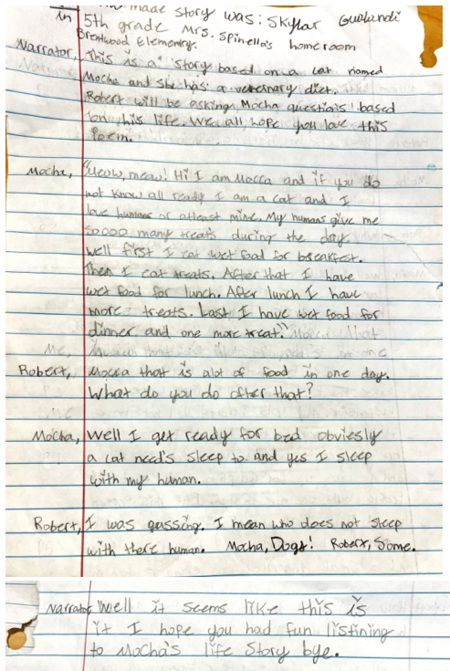 made story was: Skylar Gualandi
in 5th grade Mrs. Spinella's homeroom
Brentwood Elementary.
Narrator, This is a story based on a cat named
Mocha and she has a veterinary diet.
Robert will be asking Mocha questions based
on his life. We all hope you love this
Poem.
Mocha, "Meow, meow! Hi I am Mocca and if you do
not know all ready I am a cat and I
love humans or atleast mine. My humans give me
soooo many treats during the day.
Well first I eat wet food for breakfest.
Then I eat treats. After that I have
wet food for lunch. After lunch I have
more treats. Last I have wet food for
dinner and one more treat."
Robert, Mocka that is alot of food in one day.
What do you do after that?
Mocha, Well I get ready for bed obviesly
a cat need's sleep to and yes I sleep
with my human.
Robert, I was gassing. I mean who does not sleep
with there human. Mocha, Dogs! Robert, Some.
Narrator, Well it seems like this is
it I hope you had fun listining
to Mocha's life story bye.